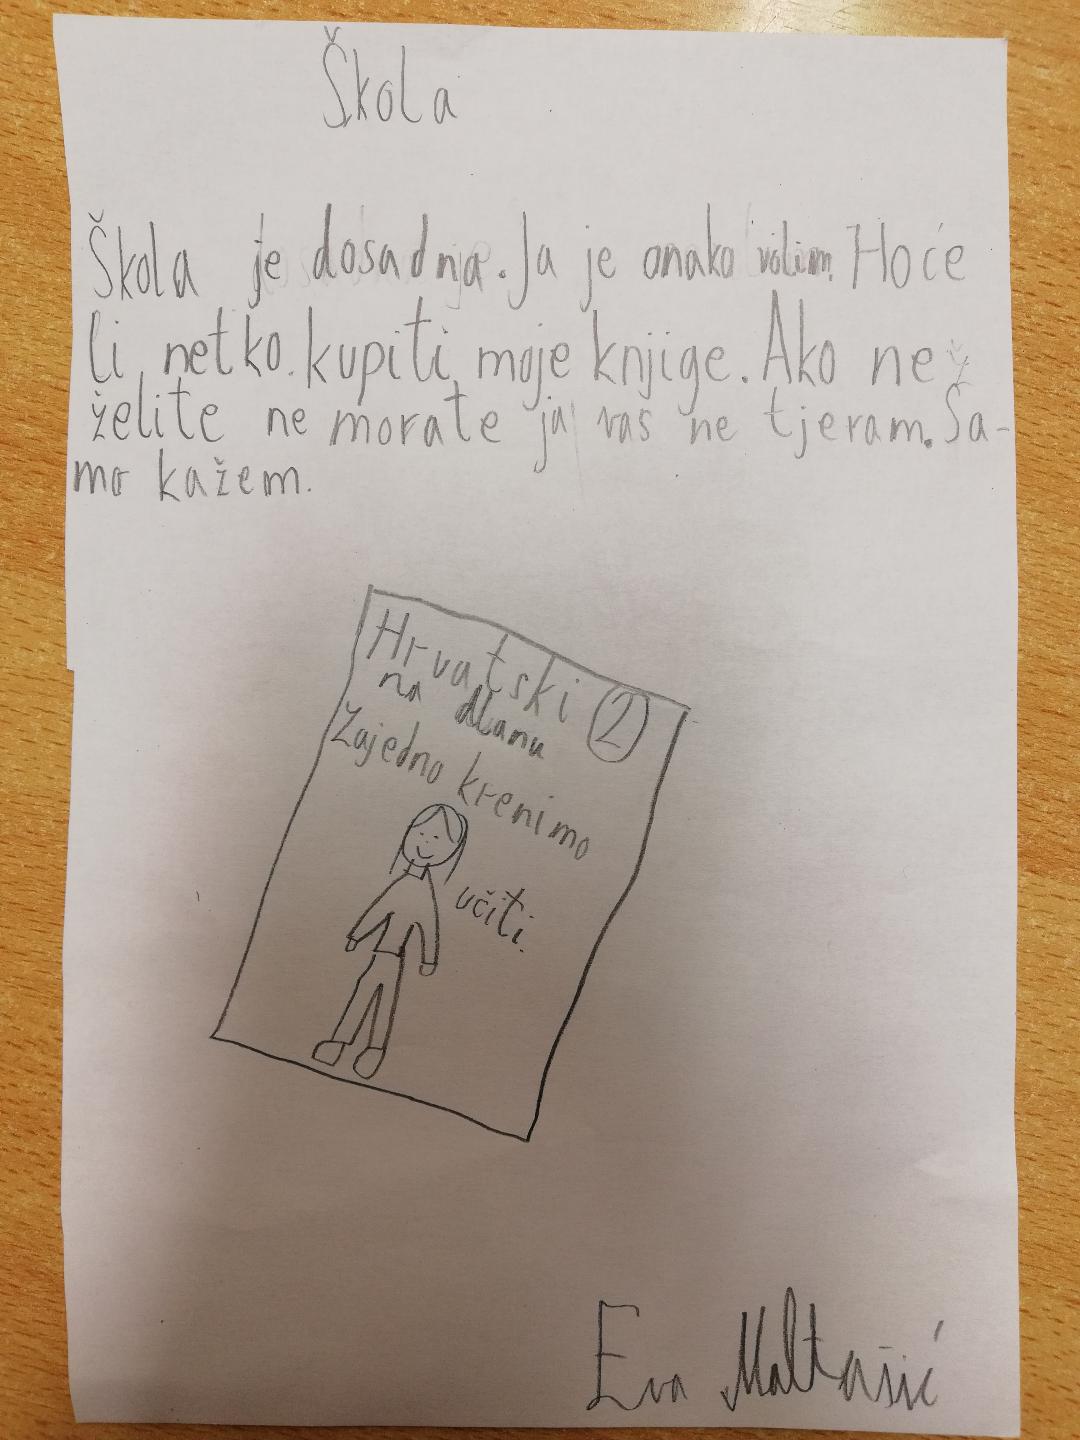 Škola
Škola je dosadnja. Ja je onako volim. Hoće
li netko. kupiti moje knjige. Ako ne
želite ne morate ja vas ne tjeram. Sa-
mo kažem.
Hrvatski 2
na dlanu
Zajedno krenimo
učiti.
Eva Maltašić